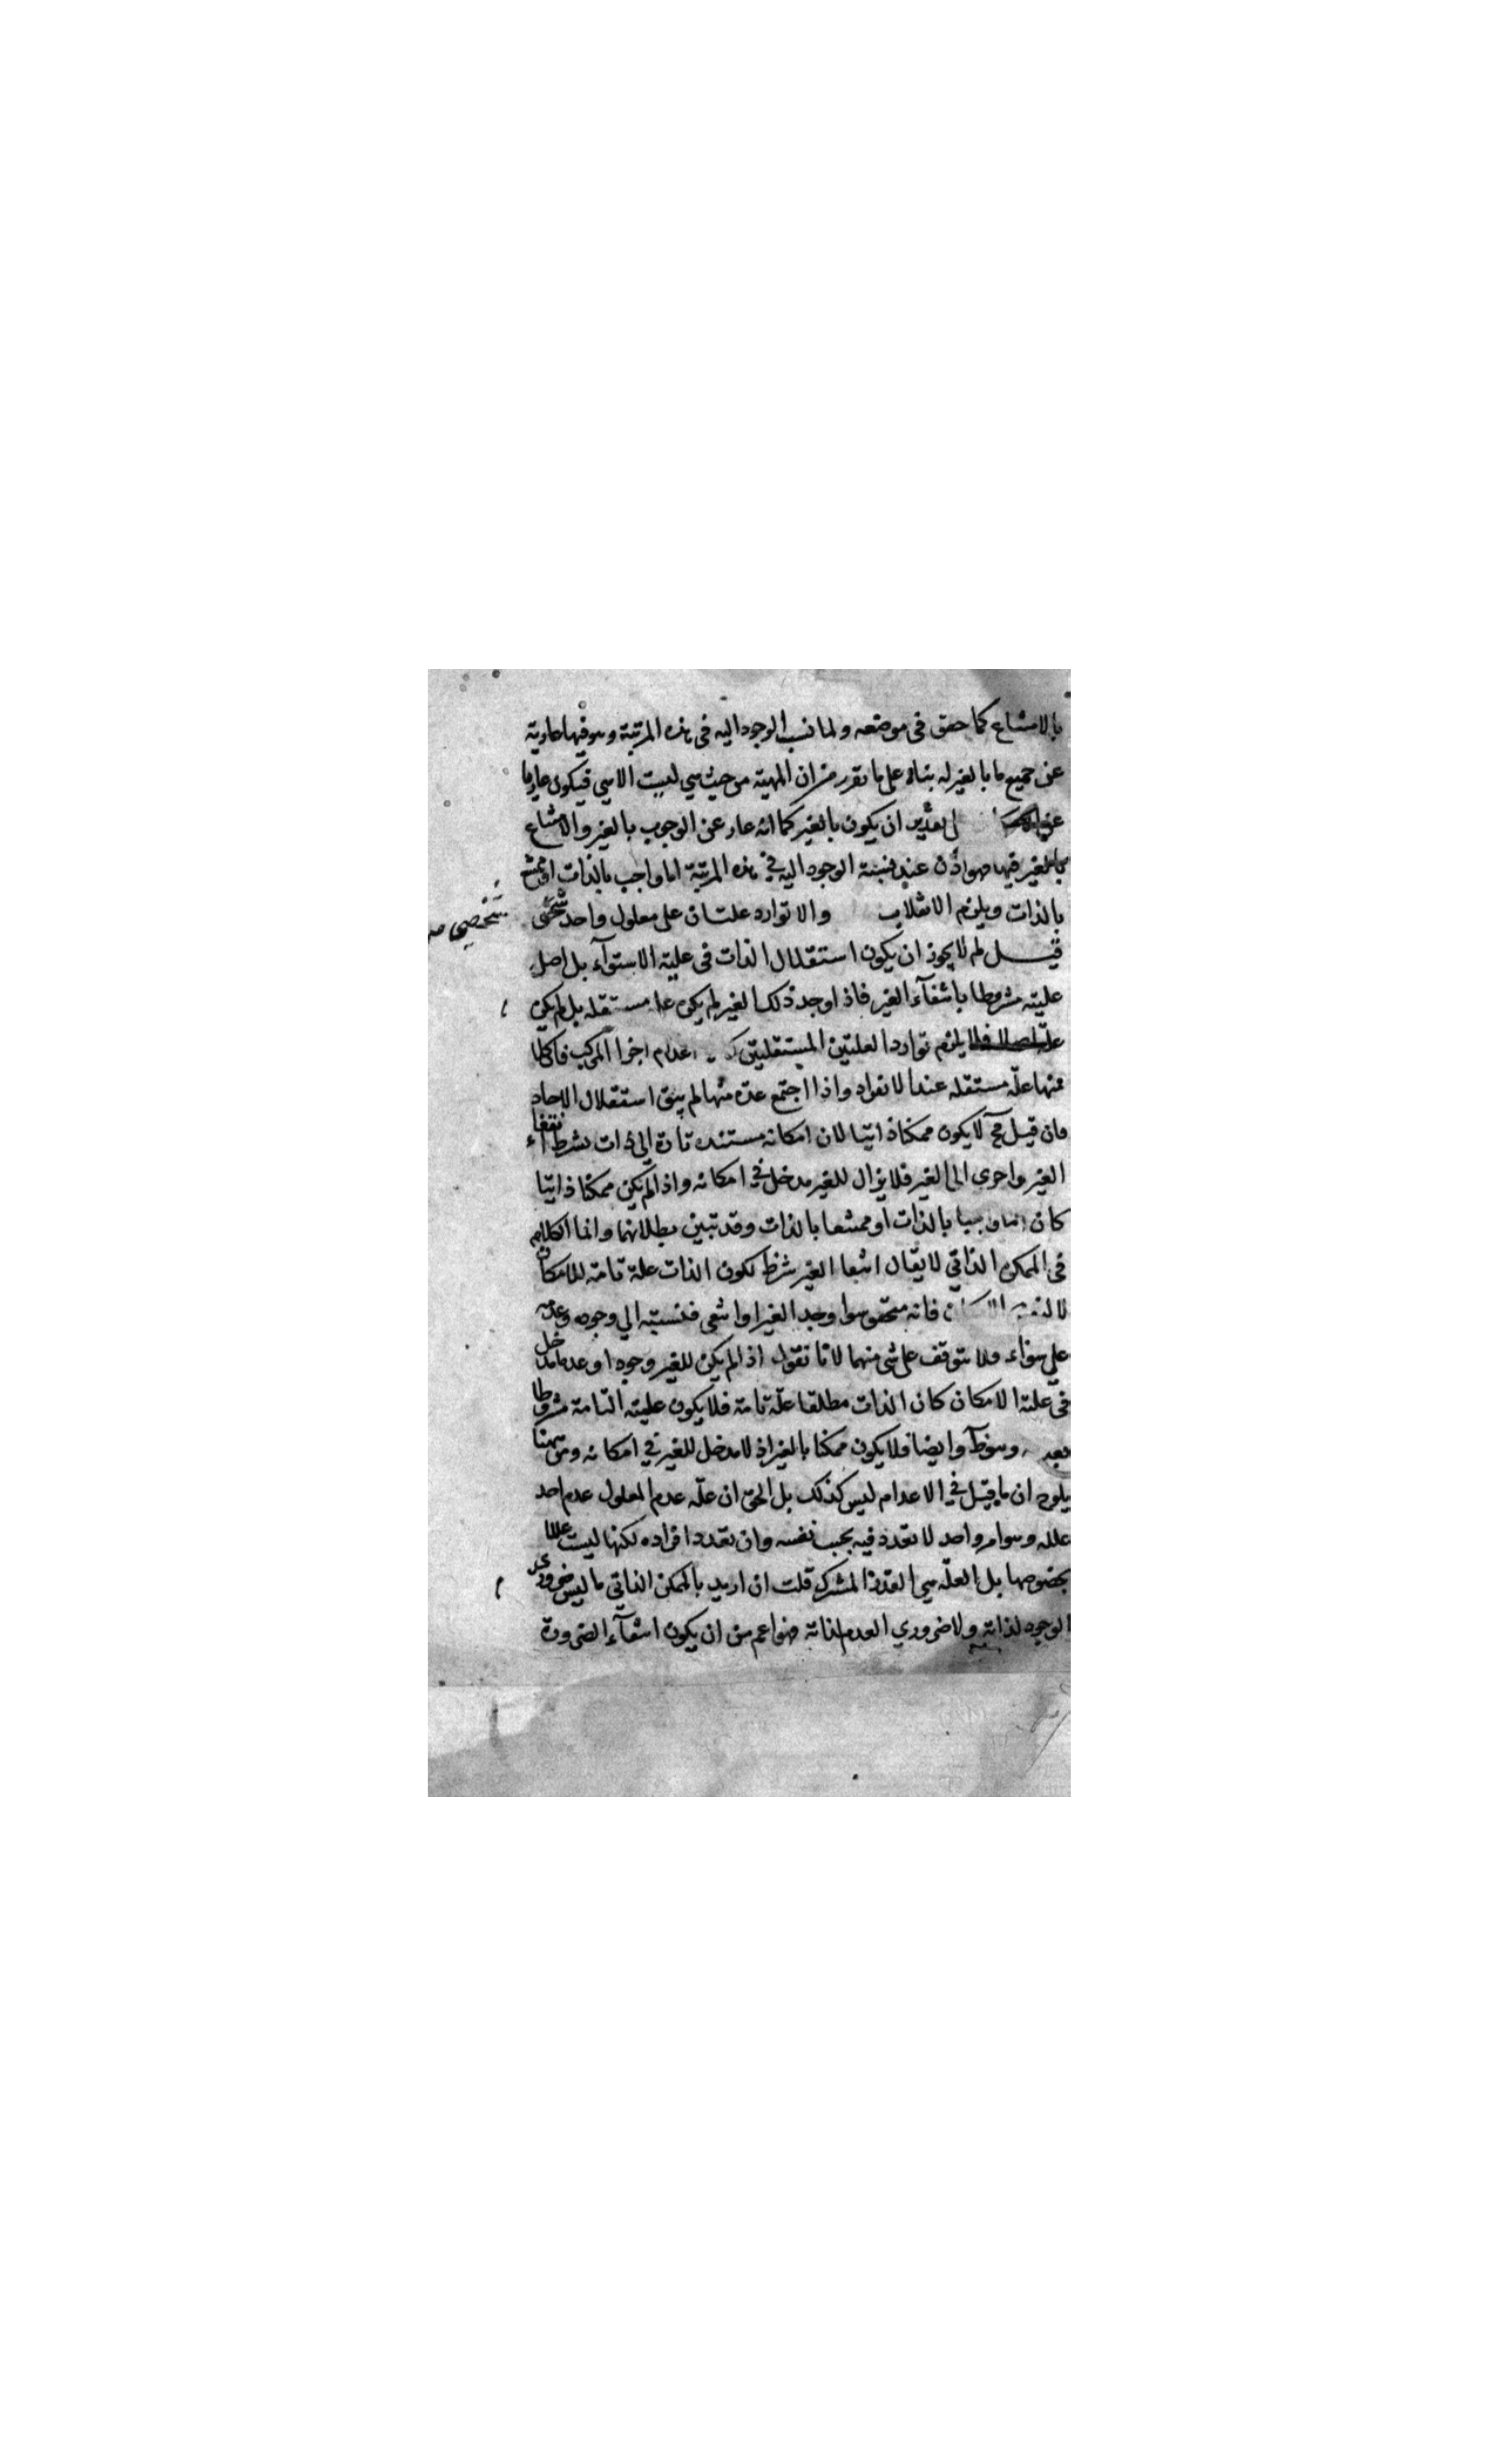 بالامتناع كما حقق فى موضعه ولما نسب الوجود اليه فى هذه المرتبة وهو فيها عارية
عن جميع ما بالغير له بناء على ما تقرر من ان المهية من حيث هي ليست الا هي فيكون عاريا
عن لى تقدير ان يكون بالغير كما انه عار عن الوجوب بالغير والامتناع
بالغير فيها فهو اذن عند نسبة الوجود اليه في هذه المرتبة اما واجب بالذات او ممتنع
بالذات ويلزم الانقلاب والا توارد علتان على معلول واحد شخصى
شخصى صح
قيل لم لا يجوز ان يكون استقلال الذات فى علية الاستوآء بل اصل
عليته مشروطا بانتفآء الغير فاذا وجد ذلك الغير لم يكن علة مستقلة بل لم يكن
علة اصلا فلا يلزم توارد العلتين المستقلتين اعدام اجزا المركب فان كلا
منها علّة مستقله عند الانفراد واذا اجتمع عدة منها لم يبق استقلال الاحاد
فان قيل فح لا يكون ممكنا ذاتيا لان امكانه مستند تارة الي ذات بشرط انتفاء
الغير واخرى الى الغير فلا يزال للغير مدخل في امكانه واذا لم يكن ممكنا ذاتيا
كان اما واجبا بالذات او ممتنعا بالذات وقد تبين بطلانهما وانما الكلام
فى الممكن الذاتي لا يقال انتفا الغير شرط لكون الذات علة تامة للامكان
لا لنفس الامكان فانه متحقق سوا وجد الغير او انتفى فنسبته الي وجوده وعدمه
علي سواء ولا يتوقف على شى منهما لانا نقول اذا لم يكن للغير وجودا وعدما مدخل
فى علة الامكان كان الذات مطلقا علّة تامة فلا يكون عليته التامة مشروطا
وايضا فلا يكون ممكنا بالغير اذ لا مدخل للغير في امكانه ومن ههنا
يلوح ان ما قيل في الاعدام ليس كذلك بل الحق ان علّه عدم المعلول عدم احد
علله وهو امر واحد لا تعدد فيه بحسب نفسه وان تعدد افراده لكنها ليست عللا
بخصوصها بل العلّه هي القدر المشترك قلت ان اريد بالممكن الذاتي ما ليس ضروري
الوجود لذاته ولا ضروري العدم لذاته فهو اعم من ان يكون انتفآء الضرورة